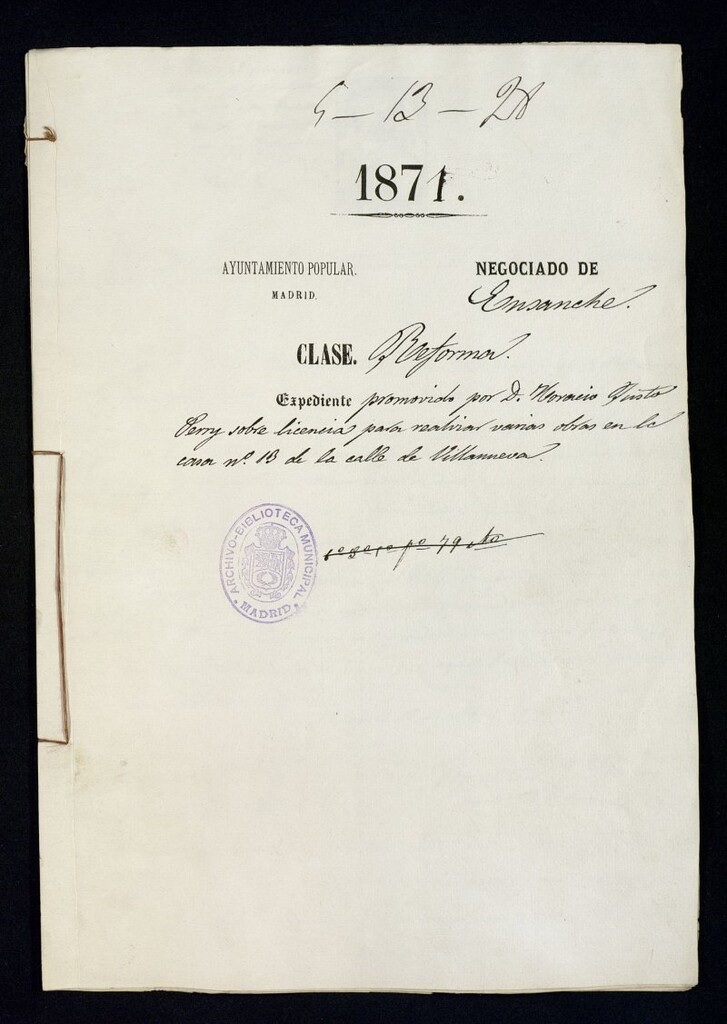 5-13-28
1871.
AYUNTAMIENTO POPULAR.
MADRID.
NEGOCIADO DE
Ensanche.
CLASE. Reforma.
Expediente promovido por D. Horacio Justo
Perry sobre licencia para realizar varias obras en la
casa nº. 13 de la calle de Villanueva.
ARCHIVO-BIBLIOTECA MUNICIPAL
MADRID